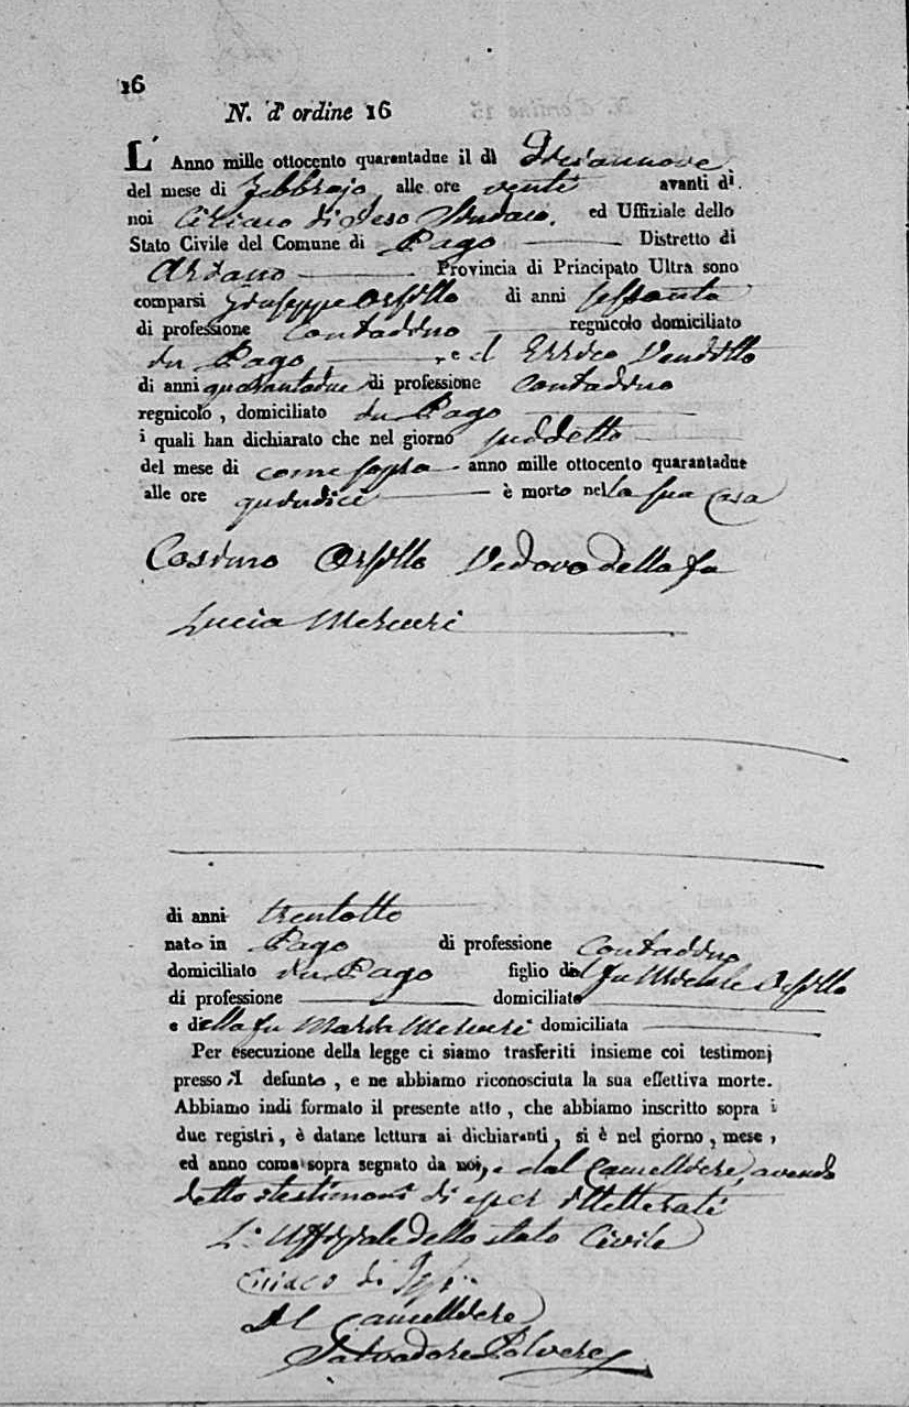 16
N. d' ordine 16
L' Anno mille ottocento quarantadue il dì Diciannove
del mese di Febbrajo alle ore venti avanti di
noi Ciriaco di Sindaco, ed Uffiziale dello
Stato Civile del Comune di Pago Distretto di
Ariano Provincia di Principato Ultra sono
comparsi Giuseppe Orsillo di anni sessanta
di professione Contadino regnicolo domiciliato
in Pago , e d Errico Vendillo
di anni quarantadue di professione Contadino
regnicolo , domiciliato in Pago
i quali han dichiarato che nel giorno suddetto
del mese di come sopra anno mille ottocento quarantadue
alle ore quindici è morto nella sua Casa
Cosimo Orsillo Vedovo della fu
Lucia Mercuri
di anni trentotto
nato in Pago di professione Contadino
domiciliato in Pago figlio del fu Michele Orsillo
di professione domiciliato
e della fu Maria Mercuri domiciliata
Per esecuzione della legge ci siamo trasferiti insieme coi testimonj
presso il defunto , e ne abbiamo riconosciuta la sua effettiva morte.
Abbiamo indi formato il presente atto , che abbiamo inscritto sopra i
due registri , è datane lettura ai dichiaranti , si è nel giorno , mese ,
ed anno come sopra segnato da noi, e dal Cancelliere, avendo
detto i testimoni di esser illetterati
L'Uffiziale dello stato Civile
Ciriaco di
Il Cancelliere
Salvadore Polvere